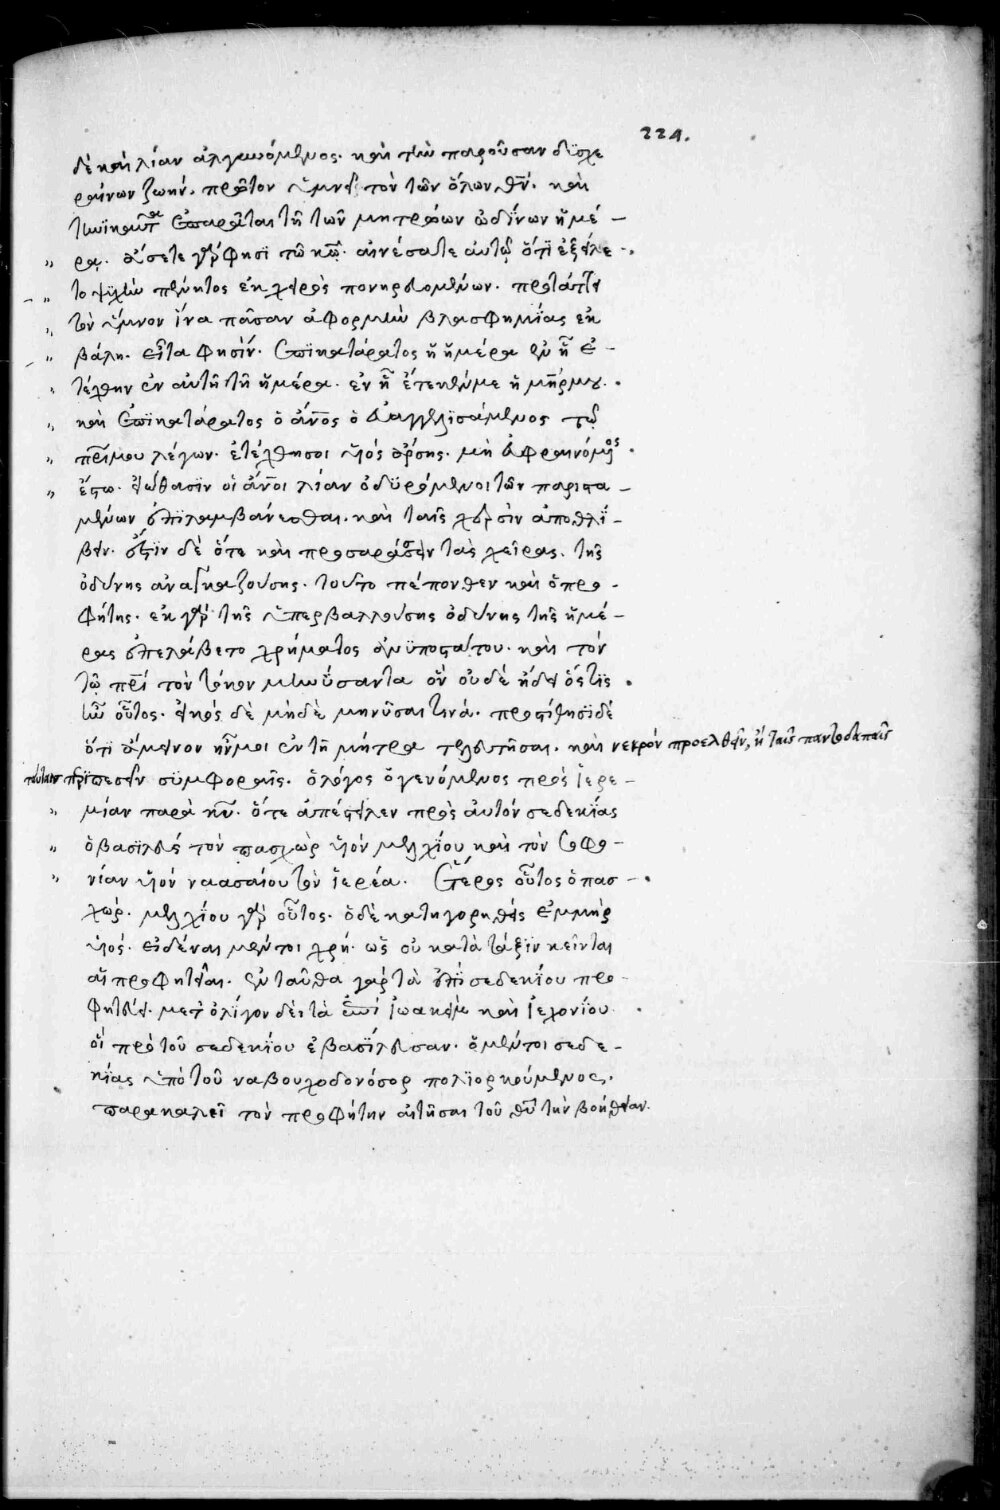 224.
δὲ καὶ λίαν ἀλγυνόμενος. καὶ τὴν παροῦσαν δυσχε
ραίνων ζωήν. πρῶτον ὑμνεῖ τὸν τῶν ὅλων θν̄. καὶ
τηνικαῦτα ἐπαρᾶται τῇ τῶν μητρῴων ὠδίνων ἡμέ –
ρᾳ. ᾄσετε γὰρ φησὶ τῶ κω̄. αἰνέσατε αὐτῷ ὅτι ἐξείλε –
το ψυχὴν πένητος ἐκ χειρὸς πονηρευομένων. προτάττει
τὸν ὕμνον ἵνα πᾶσαν ἀφορμὴν βλασφημίας ἐκ
βάλῃ. εἶτα φησίν. ἐπικατάρατος ἡ ἡμέρα ἐν ᾗ ἐ –
τέχθην ἐν αὐτῇ τῇ ἡμέρα. ἐν ᾗ ἔτεκέν με ἡ μη̄ρ μου.
καὶ ἐπικατάρατος ὁ ἄνο̄ς ὁ εὐαγγελισάμενος τῷ
πρ̄ί μου λέγων. ἐτέχθη σοι υἱὸς ἄρσην. μὴ εὐφραινόμενος
ἔστω. εἰώθασιν οἱ ἄνο̄ι λίαν ὀδυρόμενοι τῶν παριστα –
μένων ἐπιλαμβάνεσθαι. καὶ ταῖς χερσὶν ἀποθλί –
βειν. ἔστιν δὲ ὅτε καὶ προσαράσσειν τὰς χεῖρας. τῆς
ὀδύνης ἀναγκαζούσης. τοῦτο πέπονθεν καὶ ὁ προ –
φήτης. ἐκ γὰρ τῆς ὑπερβαλλούσης ὀδύνης τῆς ἡμέ –
ρας ἐπελάβετο χρήματος ἀνυποστάτου. καὶ τὸν
τῷ πρ̄ὶ τὸν τόκον μηνύσαντα ὃν οὐδὲ ᾔδει ὅστις
ἦν οὗτος. εἰκὸς δὲ μηδὲ μηνῦσαι τινά. προστίθησι δὲ
ὅτι ἄμεινον ἦν μοι ἐν τῇ μήτρα τελευτῆσαι. καὶ νεκρὸν προελθεῖν, ἢ ταῖς παντοδαπαῖς
ταύταις περιπεσεῖν συμφοραῖς. ὁ λόγος ὁ γενόμενος πρὸς ἱερε –
μίαν παρὰ κῡ. ὅτε ἀπέστειλεν πρὸς αὐτὸν σεδεκίας
ὁ βασιλεὺς τὸν πασχὼρ υἱὸν μελχίου καὶ τὸν σοφο –
νίαν υἱὸν ναασαίου τὸν ἱερέα. ἕτερος οὗτος ὁ πασ –
χώρ. μελχίου γὰρ οὗτος. ὁ δὲ κατηγορηθεὶς ἐμμὴρ
υἱός. εἰδέναι μέντοι χρή. ὡς οὐ κατὰ τάξιν κεῖνται
αἱ προφητεῖαι. ἐνταῦθα γὰρ τὰ ἐπὶ σεδεκίου προ –
φητεύει. μετ' ὀλίγον δὲ τὰ ἐπὶ ἰωακεὶμ καὶ ἰεχονίου
οἳ πρὸ τοῦ σεδεκίου ἐβασίλευσαν. ὁ μέντοι σεδε –
κίας ὑπὸ τοῦ ναβουχοδονόσορ πολιορκούμενος.
παρακαλεῖ τὸν προφήτην αἰτῆσαι τοῦ θῡ τὴν βοήθειαν.